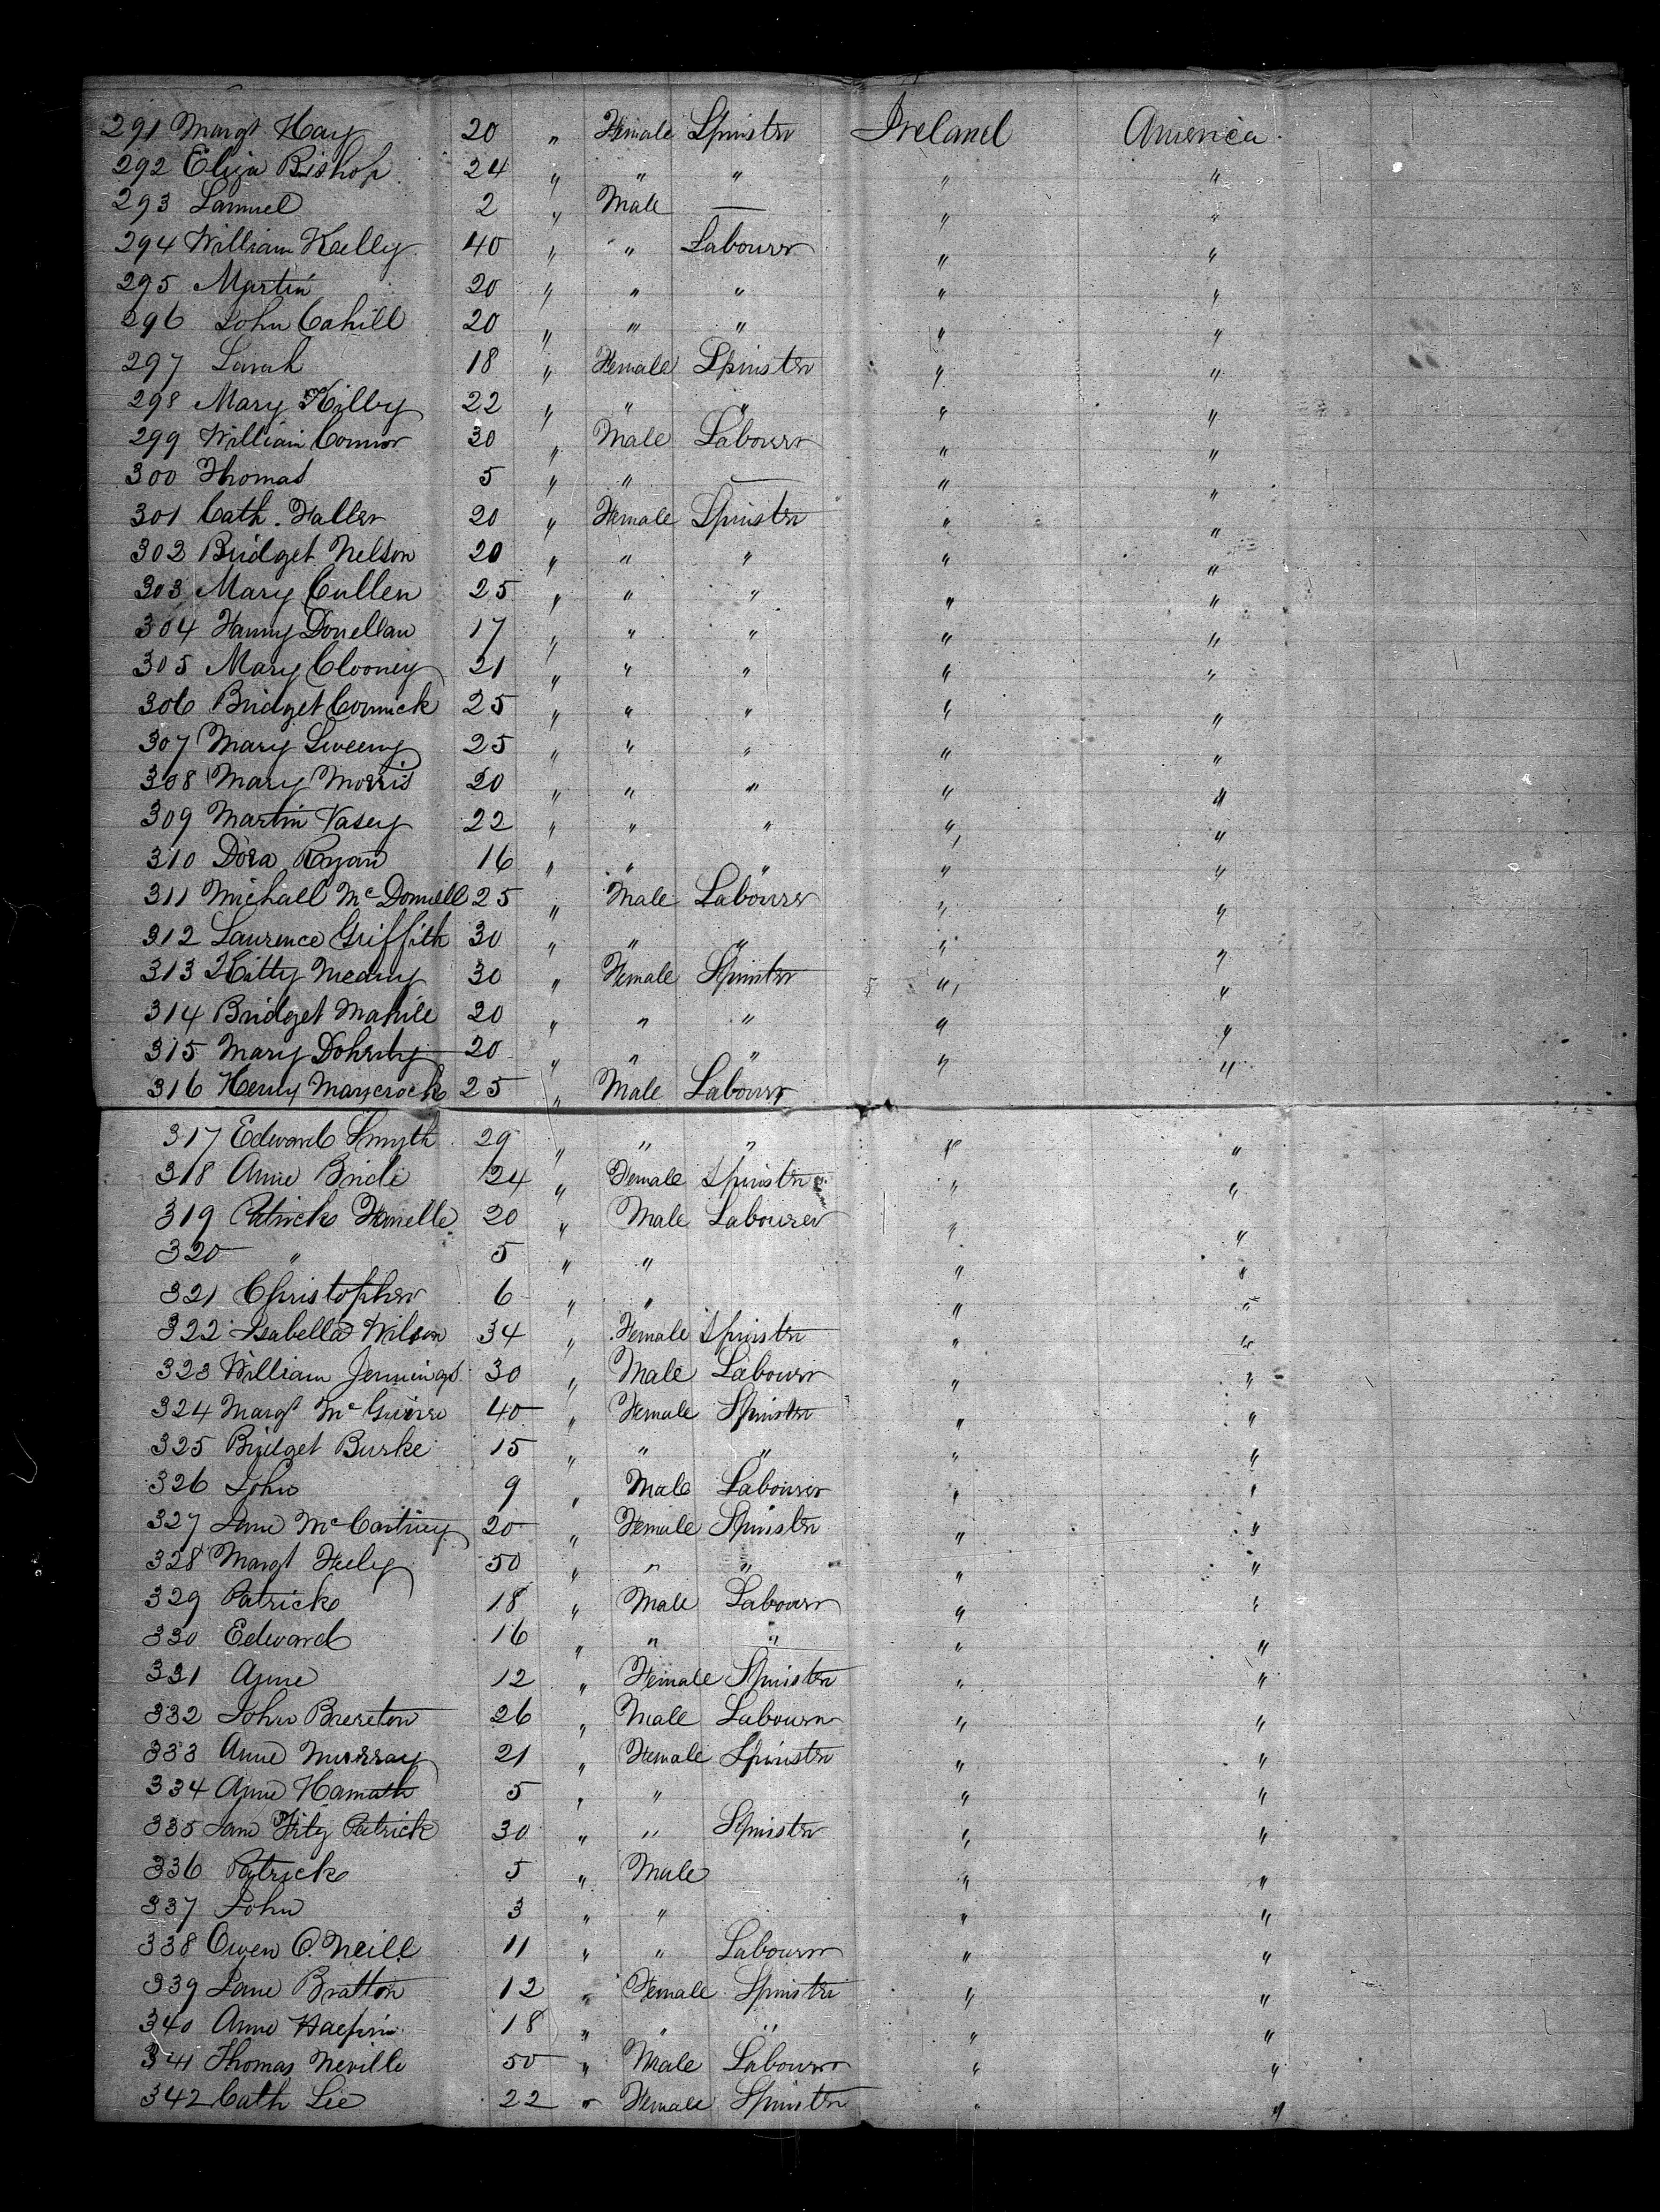 291 Margt Hay 20 " Female Spinster Ireland America
292 Eliza Bishop 24 " " " " "
293 Samuel 2 " Male — " "
294 William Kelly 40 " " Labourer " "
295 Martin 20 " " " " "
296 John Cahill 20 " " " " "
297 Sarah 18 " Female Spinster " "
298 Mary Kilby 22 " " " " "
299 William Connor 30 " Male Labourer " "
300 Thomas 5 " " — " "
301 Cath. Faller 20 " Female Spinster " "
302 Bridget Nelson 20 " " " " "
303 Mary Cullen 25 " " " " "
304 Fanny Donellan 17 " " " " "
305 Mary Clooney 21 " " " " "
306 Bridget Cormick 25 " " " " "
307 Mary Sweeny 25 " " " " "
308 Mary Morris 20 " " " " "
309 Martin Vasey 22 " " " " "
310 Dora Ryan 16 " " " " "
311 Michall McDonnell 25 " Male Labourer " "
312 Laurence Griffith 30 " " " " "
313 Kitty Neany 30 " Female Spinster " "
314 Bridget Mahile 20 " " " " "
315 Mary Doherty 20 " " " " "
316 Henry Maycrock 25 " Male Labourer
317 Edward Smyth 29 " " " " "
318 Anne Bride 24 " Female Spinster " "
319 Patrick 20 " Male Labourer " "
320 " 5 " " " "
321 Christopher 6 " " " "
322 Isabella Wilson 34 " Female Spinster " "
323 William Jennings 30 " Male Labourer " "
324 Margt McGuire 40 " Female Spinster " "
325 Bridget Burke 15 " " " " "
326 John 9 " Male Labourer " "
327 Jane McCartney 20 " Female Spinster " "
328 Margt Feely 50 " " " " "
329 Patrick 18 " Male Labourer " "
330 Edward 16 " " " " "
331 Anne 12 " Female Spinster " "
332 John Brereton 26 " Male Labourer " "
333 Anne Murray 21 " Female Spinster " "
334 Anne Hamath 5 " " " "
335 Jane Fitz Patrick 30 " " Spinster " "
336 Patrick 5 " Male " "
337 John 3 " " " "
338 Owen O.Neill 11 " " Labourer " "
339 Jane Bratton 12 " Female Spinster " "
340 Anne 18 " " " " "
341 Thomas Neville 50 " Male Labourer " "
342 Cath Lee 22 " Female Spinster " "